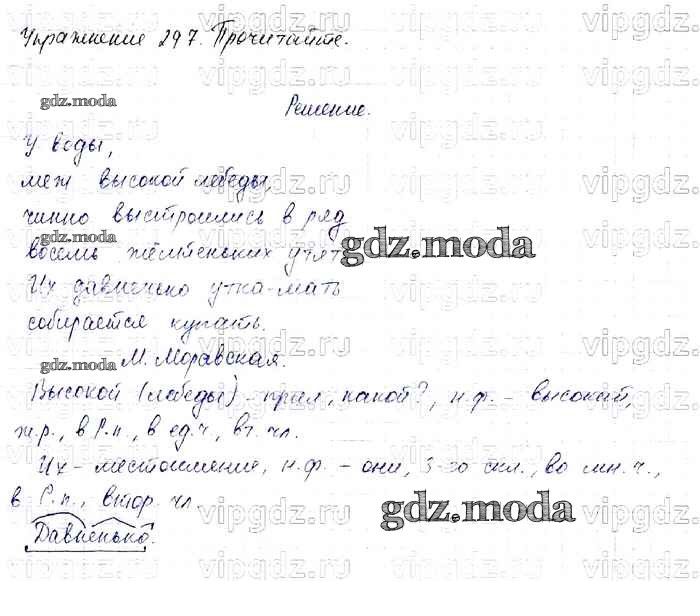 Упражнение 297. Прочитайте.
gdz.moda
Решение.
У воды,
меж высокой лебеды,
чинно выстроились в ряд
gdz.moda
восемь жёлтеньких утят
gdz.moda
Их давненько утка-мать
собирается купать.
gdz.moda
М. Моравская.
Высокой (лебеды) - прил., какой?, н.ф. - высокий,
ж.р., в Р.п., в ед.ч., вт. чл.
Их - местоимение, н.ф. - они, 3-го скл., во мн.ч.,
в Р.п., втор. чл.
gdz.moda
Давненько.